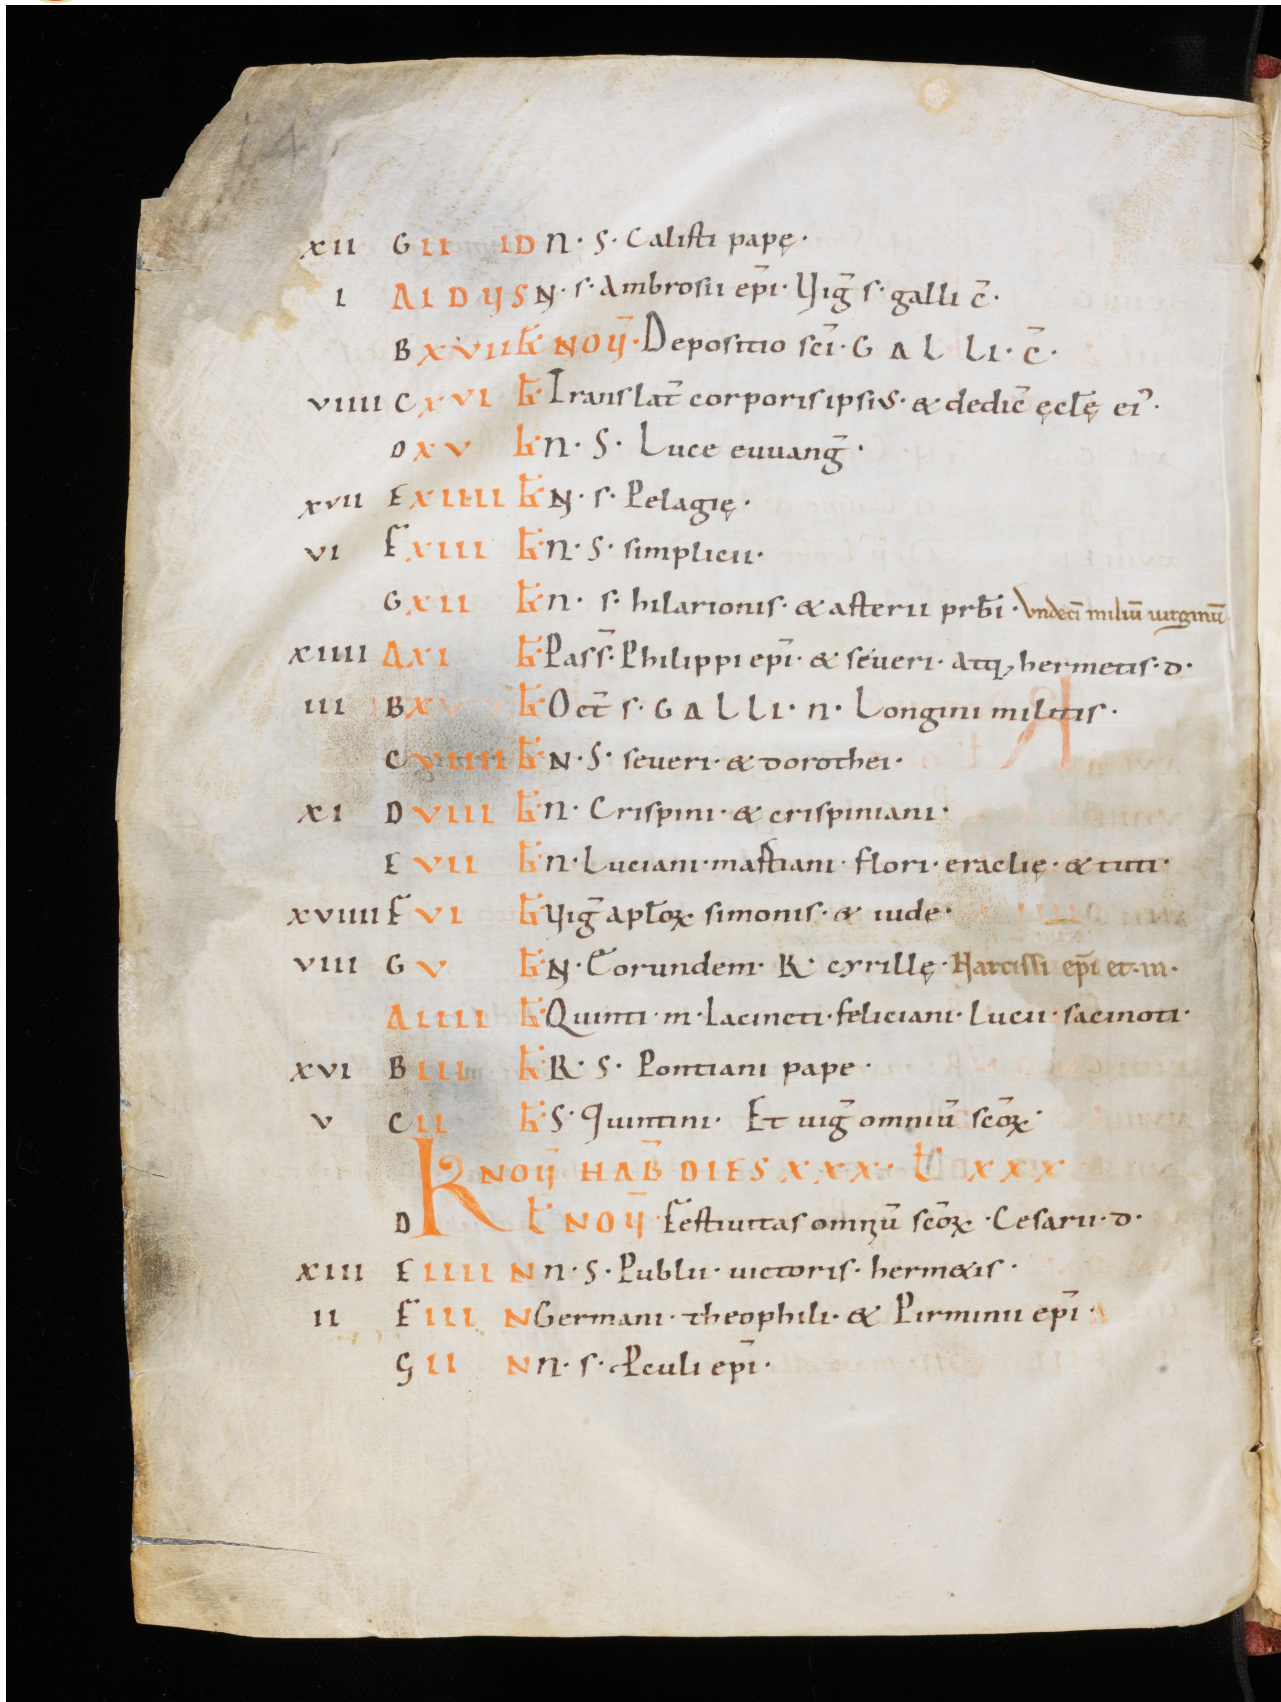 XII G II ID N· S· Calisti papę·
I A I D VS N· S· Ambrosii ep̄i· Viḡ s· galli c̄·
B XVII K̄ NOV̄· Depositio sc̄i· G A L LI· c̄·
VIIII C XVI K̄· Translat̄ corporis ipsius· & dedic̄ ęcl̄ę ei᾿·
D XV K̄ N· S· Luce euuanḡ·
XVII E XIIII K̄ N· S· Pelagię·
VI F XIII K̄· N· S· simplicii·
G XII K̄ N· S· hilarionis· & asterii prb̄i· Vndecī miliū uirginū
XIIII A XI K̄· Pass̄· Philippi ep̄i· & seueri· atq; hermetis· d·
III B X K̄· Oct̄ s· G A L LI· N· Longini militis·
C VIIII K̄· N· S· seueri· & dorothei·
XI D VIII K̄· N· Crispini· & crispiniani·
E VII K̄· N· Luciani· mastiani· flori· eraclię· & titi·
XVIIII F VI K̄ Viḡ apl̄oꝝ simonis· & iude·
VIII G V K̄· N· Eorundem· R· cyrillę· Narcissi ep̄i et· m·
A IIII K̄· Quinti· m· Iacincti· feliciani· Lucii· sacinoti·
XVI B III K̄· R· S· Pontiani pape·
V C II K̄· S· Quintini· Et uiḡ omniū sc̄oꝝ·
K NOV̄ HAB̄ DIES XXX· Ł XXX
D K̄ NOV̄· Festiuitas omniū sc̄oꝝ· Cesarii· d·
XIII E IIII N N· S· Publii· uictoris· herm&is·
II F III N Germani· theophili· & Pirminii ep̄i·
G II N N· S· ꝓculi ep̄i·